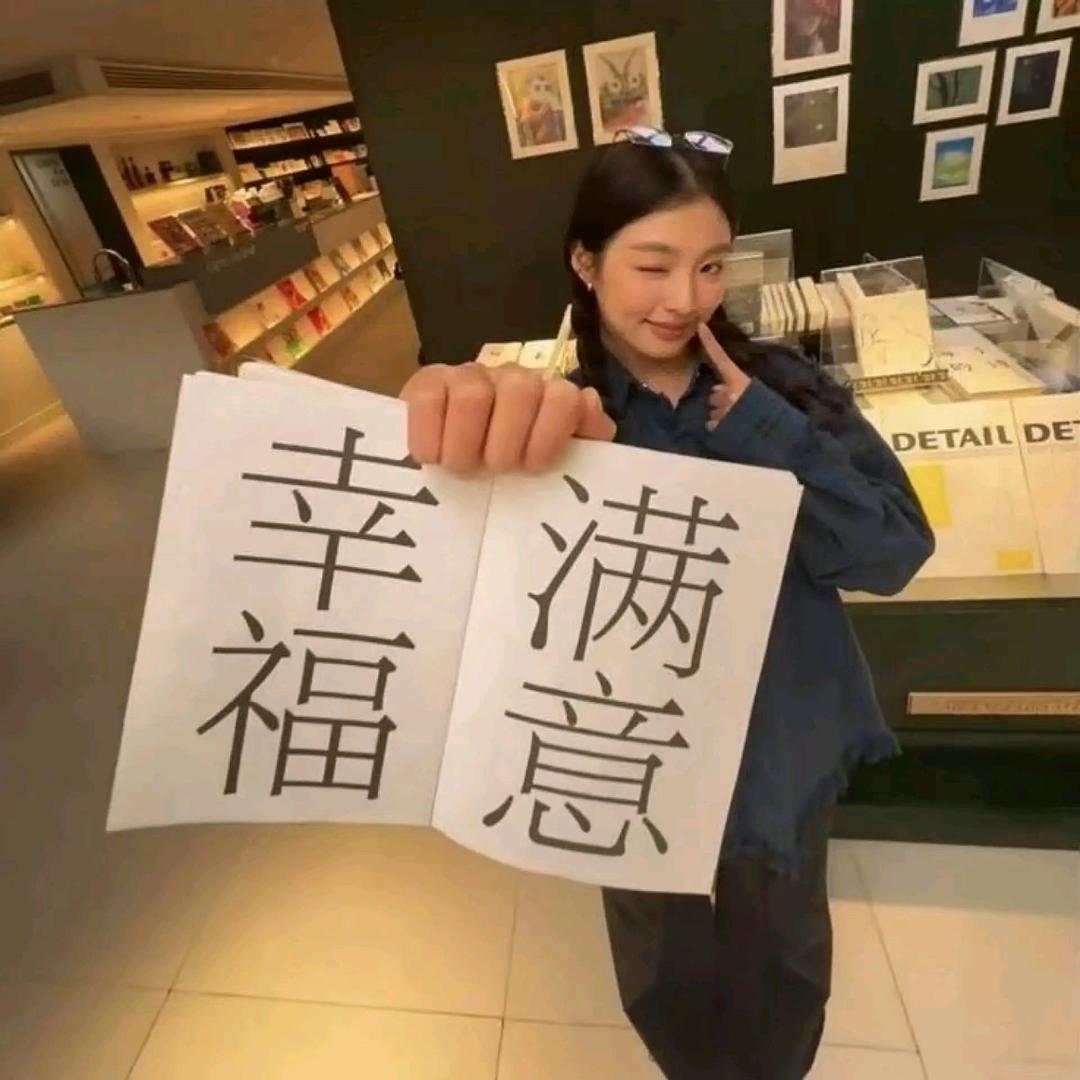 幸福
满意
DETAIL
DET